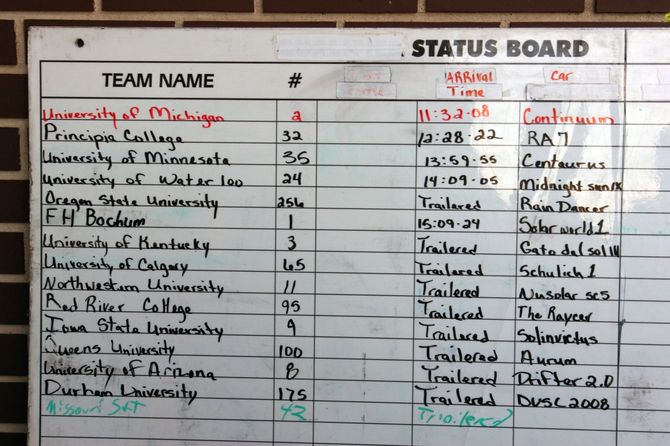 STATUS BOARD
TEAM NAME # ARRIVAL Time Car
University of Michigan 2 11:32-08 Continuum
Principia College 32 12:28-22 RA7
University of Minnesota 35 13:59-55 Centaurus
University of Water 100 24 14:09-05 Midnight sun IX
Oregon State University 256 Trailered Rain Dancer
FH Bochum 1 15:09-24 Solar world 1
University of Kentucky 3 Trailered Gato del sol IV
University of Calgary 65 Trailered Schulich 1
Northwestern University 11 Trailered Nusolar sc5
Red River College 95 Trailered The Raycer
Iowa State University 9 Trailered Solinvictus
Queens University 100 Trailered Aurum
University of Arizona 8 Trailered Drifter 2.0
Durham University 175 Trailered DUSC 2008
Missouri S&T 42 Trailered